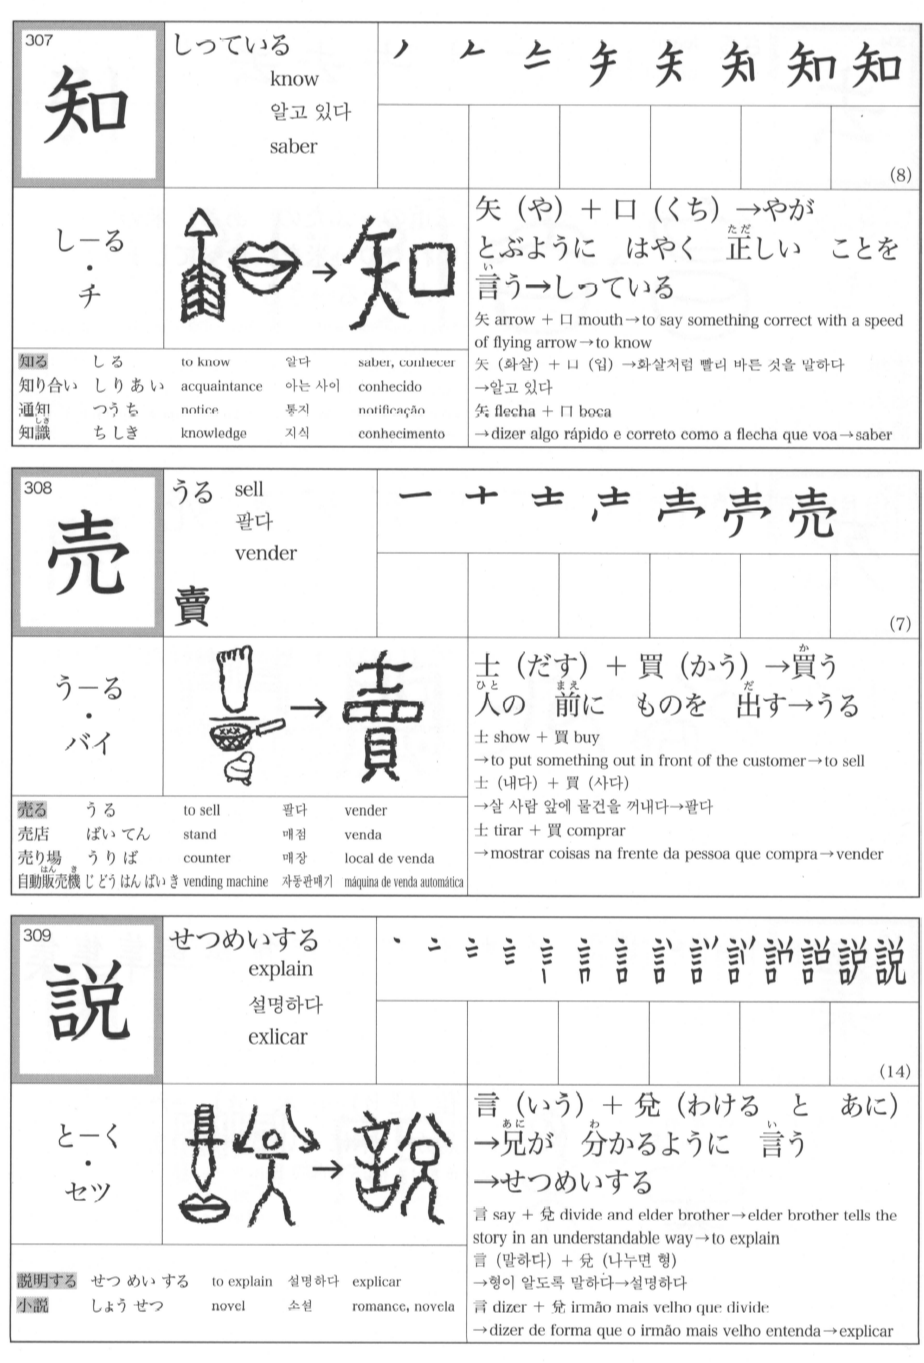 307
知
しっている
know
알고 있다
saber
ノ 𠂉 矢 知
(8)
しーる
・
チ
知
矢（や）＋口（くち）→やが
とぶように はやく 正しい ことを
ただ
言う→しっている
い
矢 arrow + 口 mouth→to say something correct with a speed
of flying arrow→to know
矢 (화살) + 口 (입) →화살처럼 빨리 바른 것을 말하다
→알고 있다
矢 flecha + 口 boca
→dizer algo rápido e correto como a flecha que voa→saber
知る しる to know 알다 saber, conhecer
知り合い しりあい acquaintance 아는 사이 conhecido
通知 つうち notice 통지 notificação
知識 ちしき knowledge 지식 conhecimento
しき
308
売
うる sell
팔다
vender
賣
一 十 士 売
(7)
うーる
・
バイ
賣
士（だす）＋買（かう）→買う
か
人の 前に ものを 出す→うる
ひと まえ だ
士 show + 買 buy
→to put something out in front of the customer→to sell
士 (내다) + 買 (사다)
→살 사람 앞에 물건을 꺼내다→팔다
士 tirar + 買 comprar
→mostrar coisas na frente da pessoa que compra→vender
売る うる to sell 팔다 vender
売店 ばい てん stand 매점 venda
売り場 うりば counter 매장 local de venda
自動販売機 じどうはんばいき vending machine 자동판매기 máquina de venda automática
はん き
309
説
せつめいする
explain
설명하다
exlicar
説
(14)
とーく
・
セツ
説
言（いう）＋兌（わける と あに）
→兄が 分かるように 言う
あに わ い
→せつめいする
言 say + 兌 divide and elder brother→elder brother tells the
story in an understandable way→to explain
言 (말하다) + 兌 (나누면 형)
→형이 알도록 말하다→설명하다
言 dizer + 兌 irmão mais velho que divide
→dizer de forma que o irmão mais velho entenda→explicar
説明する せつ めい する to explain 설명하다 explicar
小説 しょう せつ novel 소설 romance, novela